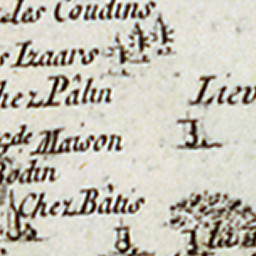 les Coudins
Izaars
chez Pâlin
Liev
gde Maison
Bodin
Chez Bâtis
la